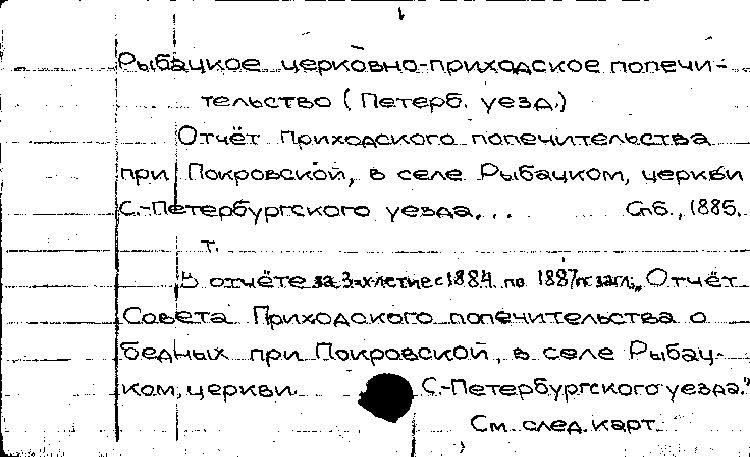 Рыбацкое церковно-приходское попечи-
тельство (Петерб. уезд.)
Отчёт Приходского попечительства
при Покровской, в селе Рыбацком, церкви
С.-Петербургского уезда... Спб., 1885.
т.
В отчёте за 3-хлетие с 1884 по 1887 гг. загл.: „Отчёт
Совета Приходского попечительства о
бедных при Покровской, в селе Рыбац-
ком, церкви С.-Петербургского уезда."
См. след. карт.